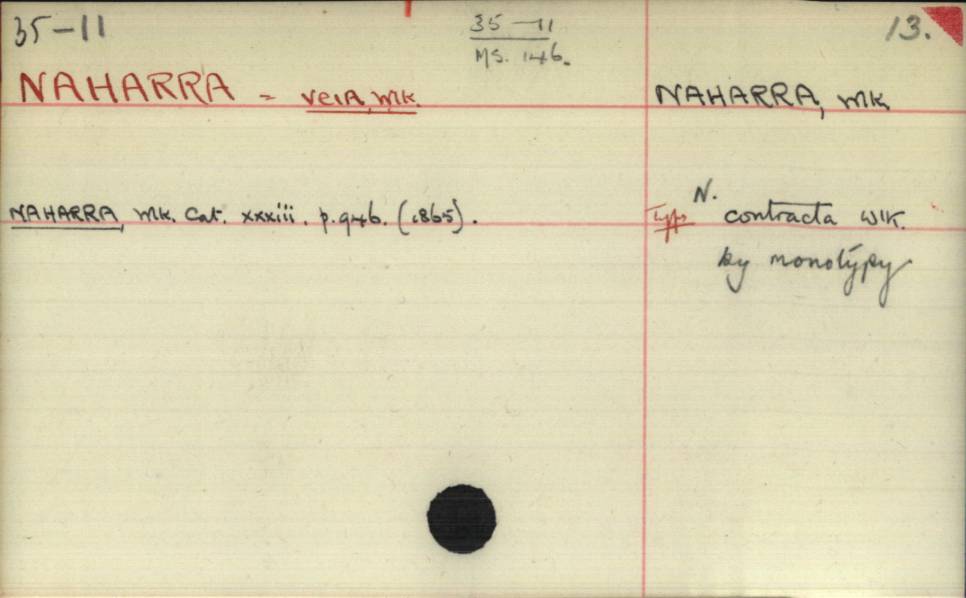 35-11
35-11
MS. 146.
13.
NAHARRA = VEIA, WlK.
NAHARRA, WlK.
NAHARRA, WlK. Cat. xxxiii. p.946. (1865).
Type N. contracta WlK.
by monotypy